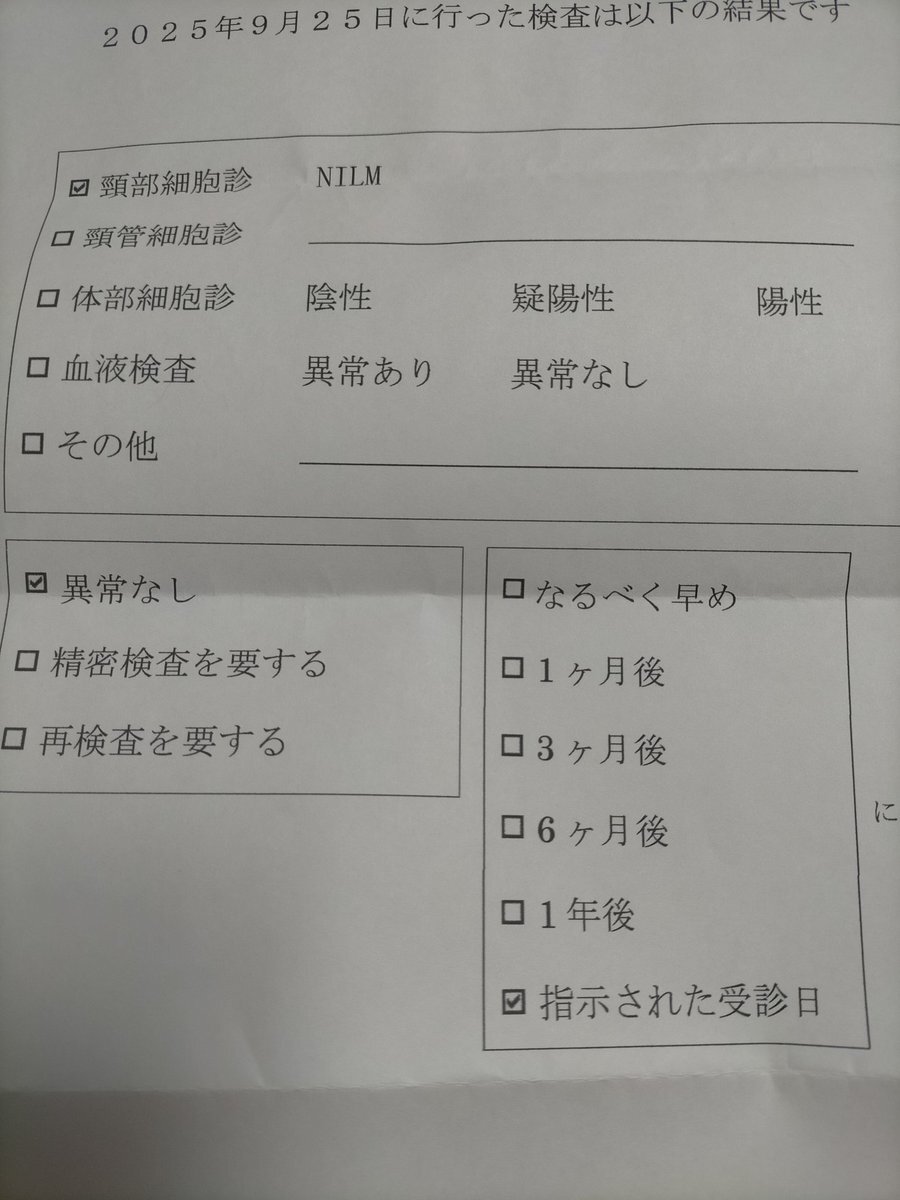 ２０２５年９月２５日に行った検査は以下の結果です
☑ 頸部細胞診 NILM
☐ 頸管細胞診
☐ 体部細胞診 陰性 疑陽性 陽性
☐ 血液検査 異常あり 異常なし
☐ その他
☑ 異常なし
☐ 精密検査を要する
☐ 再検査を要する
☐ なるべく早め
☐ 1ヶ月後
☐ 3ヶ月後
☐ 6ヶ月後
☐ 1年後
☑ 指示された受診日
に